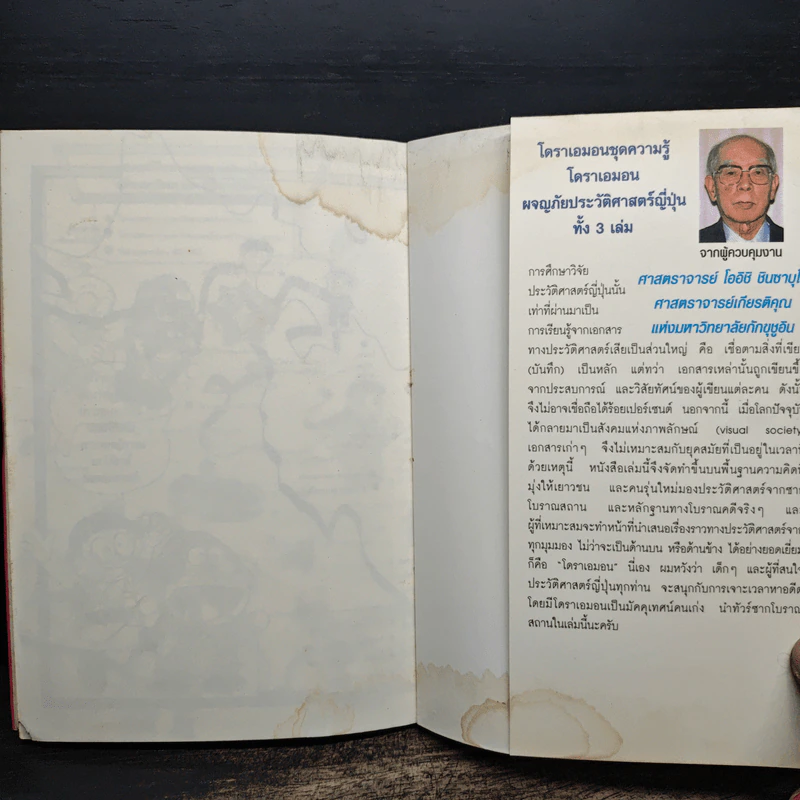 โดราเอมอนชุดความรู้
โดราเอมอน
ผจญภัยประวัติศาสตร์ญี่ปุ่น
ทั้ง 3 เล่ม
จากผู้ควบคุมงาน
ศาสตราจารย์ โออิชิ ชินซาบุโ
ศาสตราจารย์เกียรติคุณ
แห่งมหาวิทยาลัยกักขุชูอิน
การศึกษาวิจัย
ประวัติศาสตร์ญี่ปุ่นนั้น
เท่าที่ผ่านมาเป็น
การเรียนรู้จากเอกสาร
ทางประวัติศาสตร์เสียเป็นส่วนใหญ่ คือ เชื่อตามสิ่งที่เขีย
(บันทึก) เป็นหลัก แต่ทว่า เอกสารเหล่านั้นถูกเขียนขึ้
จากประสบการณ์ และวิสัยทัศน์ของผู้เขียนแต่ละคน ดังนั้
จึงไม่อาจเชื่อถือได้ร้อยเปอร์เซนต์ นอกจากนี้ เมื่อโลกปัจจุบั
ได้กลายมาเป็นสังคมแห่งภาพลักษณ์ (visual society
เอกสารเก่าๆ จึงไม่เหมาะสมกับยุคสมัยที่เป็นอยู่ในเวลานี
ด้วยเหตุนี้ หนังสือเล่มนี้จึงจัดทำขึ้นบนพื้นฐานความคิดที่
มุ่งให้เยาวชน และคนรุ่นใหม่มองประวัติศาสตร์จากซา
โบราณสถาน และหลักฐานทางโบราณคดีจริงๆ และ
ผู้ที่เหมาะสมจะทำหน้าที่นำเสนอเรื่องราวทางประวัติศาสตร์จา
ทุกมุมมอง ไม่ว่าจะเป็นด้านบน หรือด้านข้าง ได้อย่างยอดเยี่ยม
ก็คือ "โดราเอมอน" นี่เอง ผมหวังว่า เด็กๆ และผู้ที่สนใจ
ประวัติศาสตร์ญี่ปุ่นทุกท่าน จะสนุกกับการเจาะเวลาหาอดีต
โดยมีโดราเอมอนเป็นมัคคุเทศน์คนเก่ง นำทัวร์ซากโบราณ
สถานในเล่มนี้นะครับ